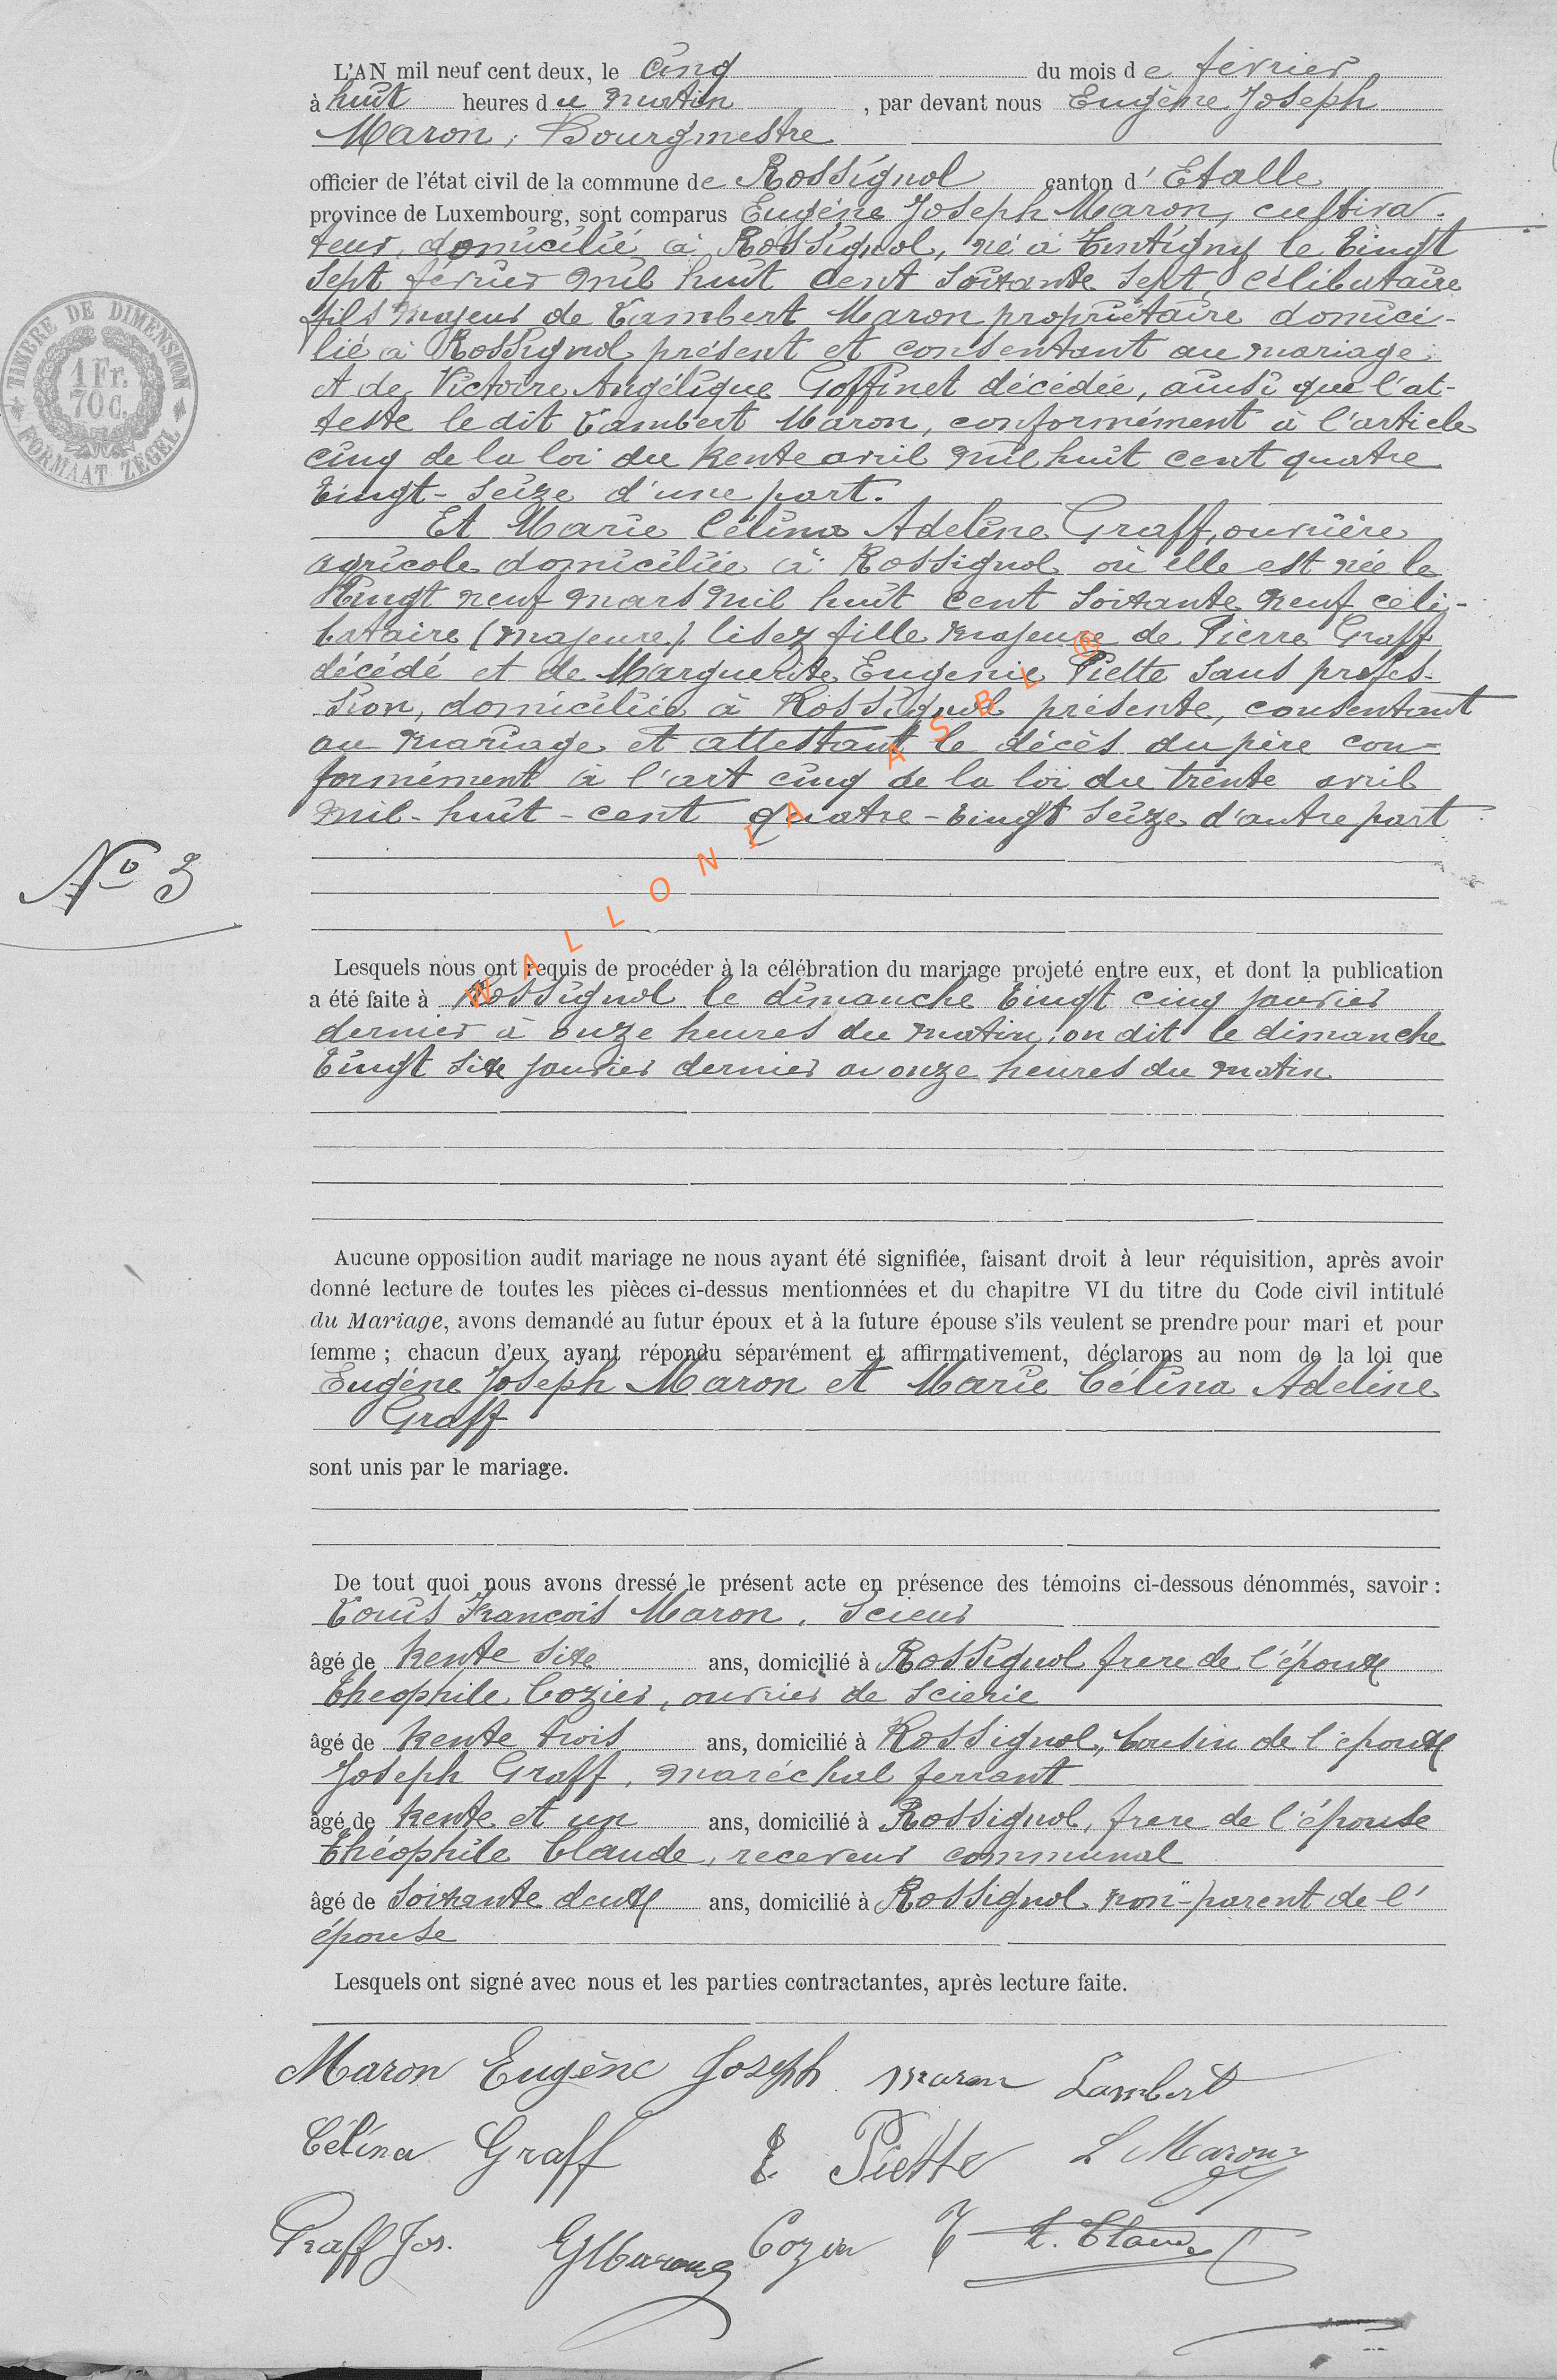 L'AN mil neuf cent deux, le cinq du mois de février
à huit heures du matin, par devant nous Eugène Joseph
Maron, Bourgmestre
officier de l'état civil de la commune de Rossignol canton d'Etalle
province de Luxembourg, sont comparus Eugène Joseph Maron, cultiva-
teur, domicilié à Rossignol, né à Tintigny le vingt
sept février mil huit cent soixante sept, célibataire
fils majeur de Lambert Maron propriétaire domici-
lié à Rossignol présent et consentant au mariage
et de Victoire Angélique Goffinet décédée, ainsi que l'at-
teste le dit Lambert Maron, conformément à l'article
cinq de la loi du trente avril mil huit cent quatre
vingt-seize d'une part.
Et Marie Célina Adeline Graff, ouvrière
agricole domiciliée à Rossignol où elle est née le
vingt neuf mars mil huit cent soixante neuf céli-
bataire (majeure) lisez fille majeure de Pierre Graff
décédé et de Marguerite Eugenie Piette sans profes-
sion, domiciliée à Rossignol présente, consentant
au mariage et attestant le décès du père con-
formément à l'art cinq de la loi du trente avril
mil-huit-cent quatre-vingt seize d'autre part
N° 3
TIMBRE DE DIMENSION
1 Fr.
70 C.
FORMAAT ZEGEL
WALLONIA ASBL ®
Lesquels nous ont requis de procéder à la célébration du mariage projeté entre eux, et dont la publication
a été faite à Rossignol le dimanche vingt cinq janvier
dernier à onze heures du matin, on dit le dimanche
vingt six janvier dernier à onze heures du matin
Aucune opposition audit mariage ne nous ayant été signifiée, faisant droit à leur réquisition, après avoir
donné lecture de toutes les pièces ci-dessus mentionnées et du chapitre VI du titre du Code civil intitulé
du Mariage, avons demandé au futur époux et à la future épouse s'ils veulent se prendre pour mari et pour
femme ; chacun d'eux ayant répondu séparément et affirmativement, déclarons au nom de la loi que
Eugène Joseph Maron et Marie Célina Adeline
Graff
sont unis par le mariage.
De tout quoi nous avons dressé le présent acte en présence des témoins ci-dessous dénommés, savoir :
Louis François Maron, Scieur
âgé de trente six ans, domicilié à Rossignol frere de l'époux
Théophile Cozier, ouvrier de scierie
âgé de trente trois ans, domicilié à Rossignol, cousin de l'époux
Joseph Graff, maréchal ferrant
âgé de trente et un ans, domicilié à Rossignol, frere de l'épouse
Théophile Claude, receveur communal
âgé de soixante deux ans, domicilié à Rossignol non-parent de l'
épouse
Lesquels ont signé avec nous et les parties contractantes, après lecture faite.
Maron Eugène Joseph Maron Lambert
Célina Graff E. Piette L Maron
Graff Jos. EJMaron Cozier T T. Claude